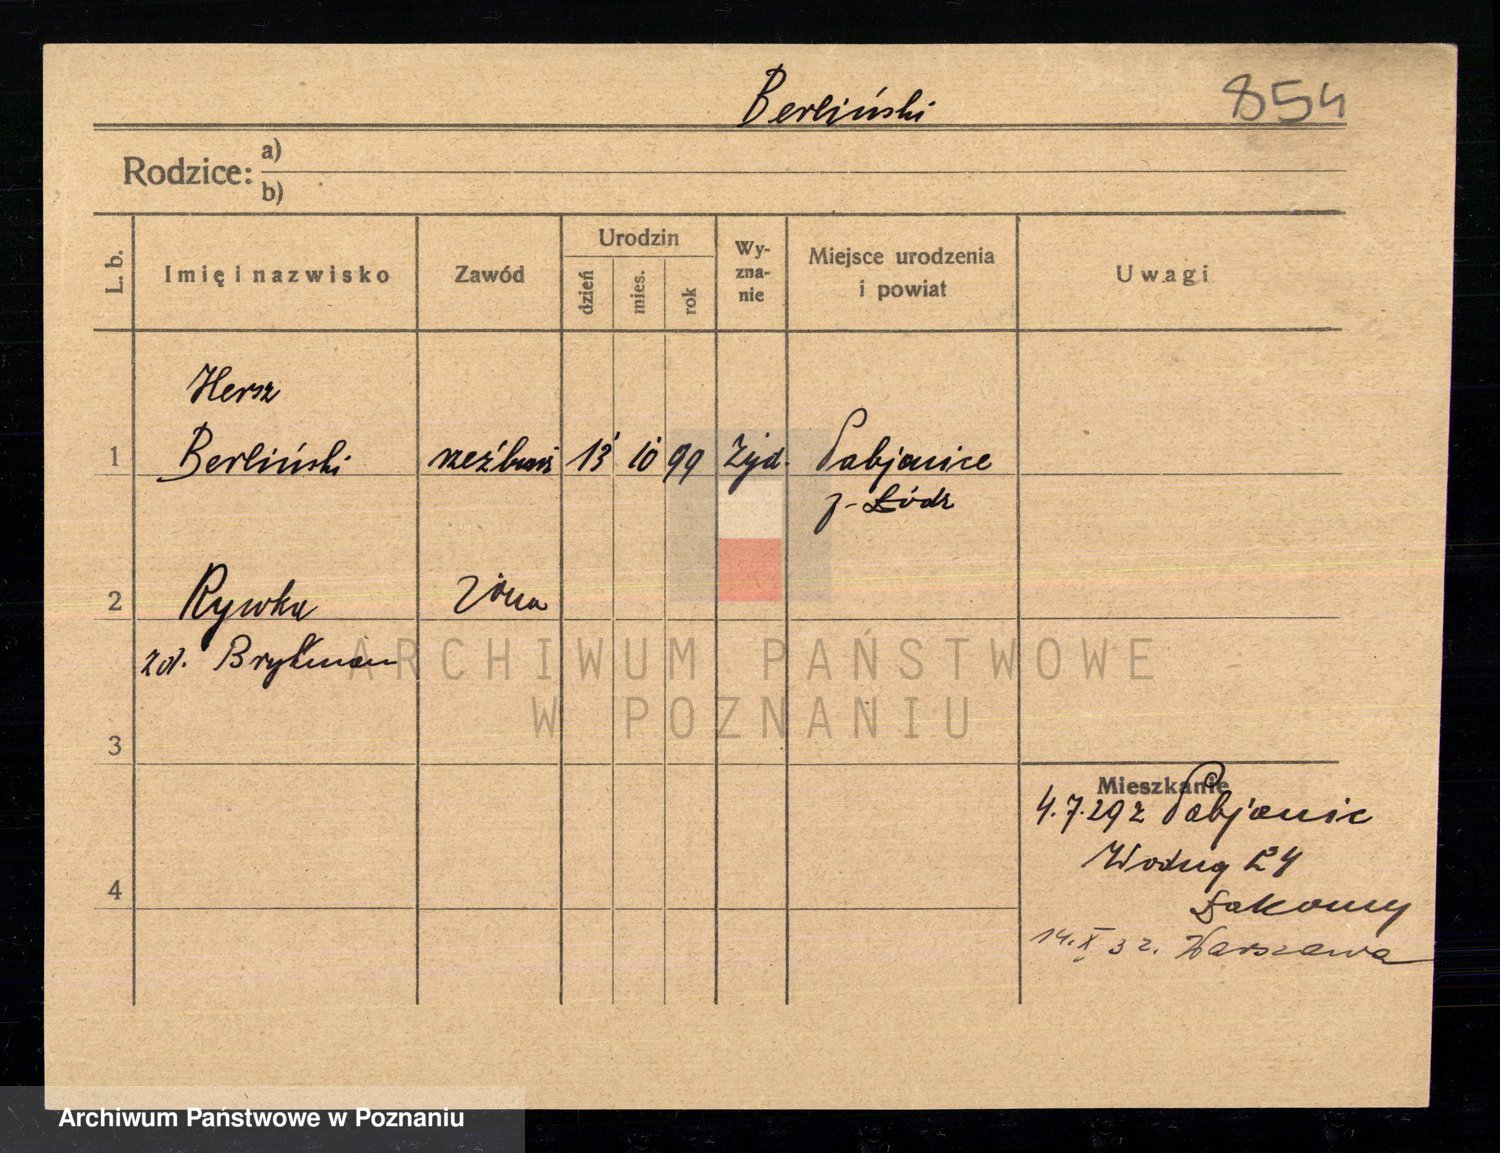 Berliński 854
Rodzice: a)
b)
L. b. Imię i nazwisko Zawód Urodzin dzień mies. rok Wyznanie Miejsce urodzenia i powiat Uwagi
Hersz
1 Berliński 13 10 99 Żyd. Pabjanice
p- Łódz
2 Rywka Żona
zd. Brykman
ARCHIWUM PAŃSTWOWE
W POZNANIU
3
Mieszkanie
4.7.29 z Pabjanic
4 Wodna 24
14.X 32. Warszawa
Archiwum Państwowe w Poznaniu